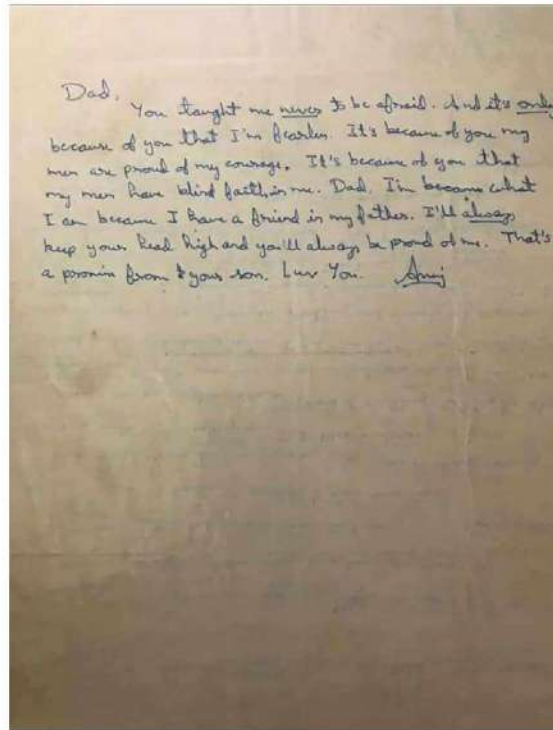 Dad,
You taught me never to be afraid. And it's only
because of you that I'm fearless. It's because of you my
men are proud of my courage. It's because of you that
my men have blind faith in me. Dad, I'm became what
I am because I have a friend in my father. I'll always
keep your head high and you'll always be proud of me. That's
a promise from your son. Luv You. Anuj